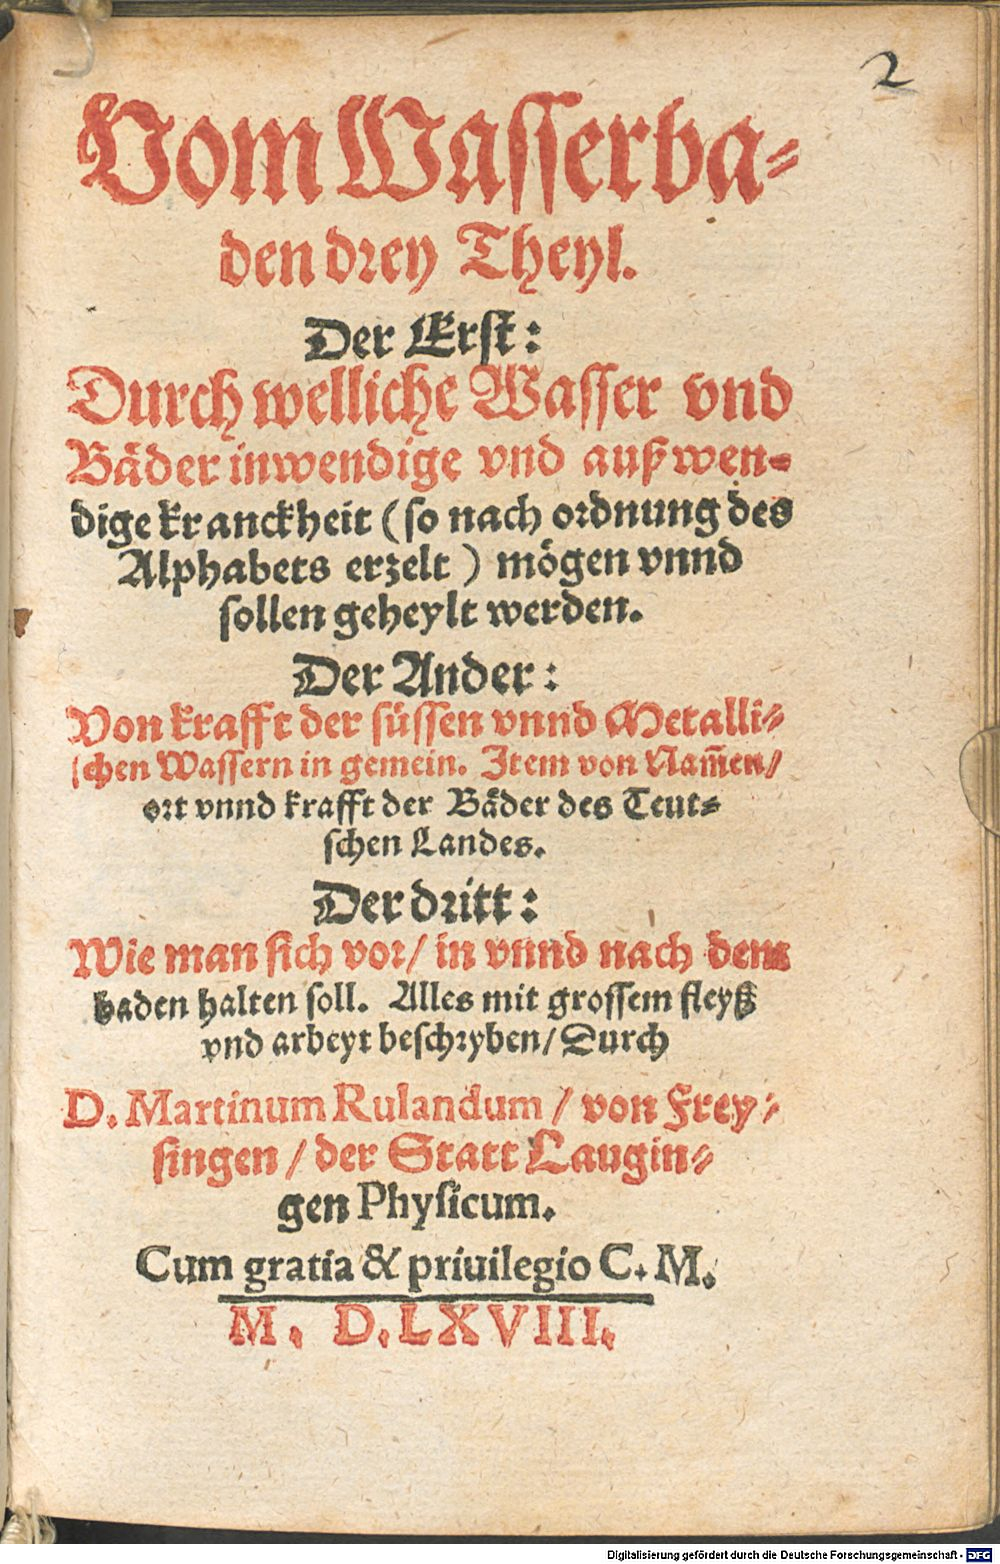 2
Vom Wasserba-
den drey Theyl.
Der Erst:
Durch welliche Wasser vnd
Bäder inwendige vnd außwen-
dige kranckheit (so nach ordnung des
Alphabets erzelt) mögen vnnd
sollen geheylt werden.
Der Ander:
Von krafft der süssen vnnd Metalli-
schen Wassern in gemein. Item von Nam̄en/
ort vnnd krafft der Bäder des Teut-
schen Landes.
Der dritt:
Wie man sich vor/ in vnnd nach dem
baden halten soll. Alles mit grossem fleyß
vnd arbeyt beschryben/ Durch
D. Martinum Rulandum / von Frey-
singen / der Statt Laugin-
gen Physicum.
Cum gratia & priuilegio C. M.
M. D. LXVIII.
Digitalisierung gefördert durch die Deutsche Forschungsgemeinschaft - DFG